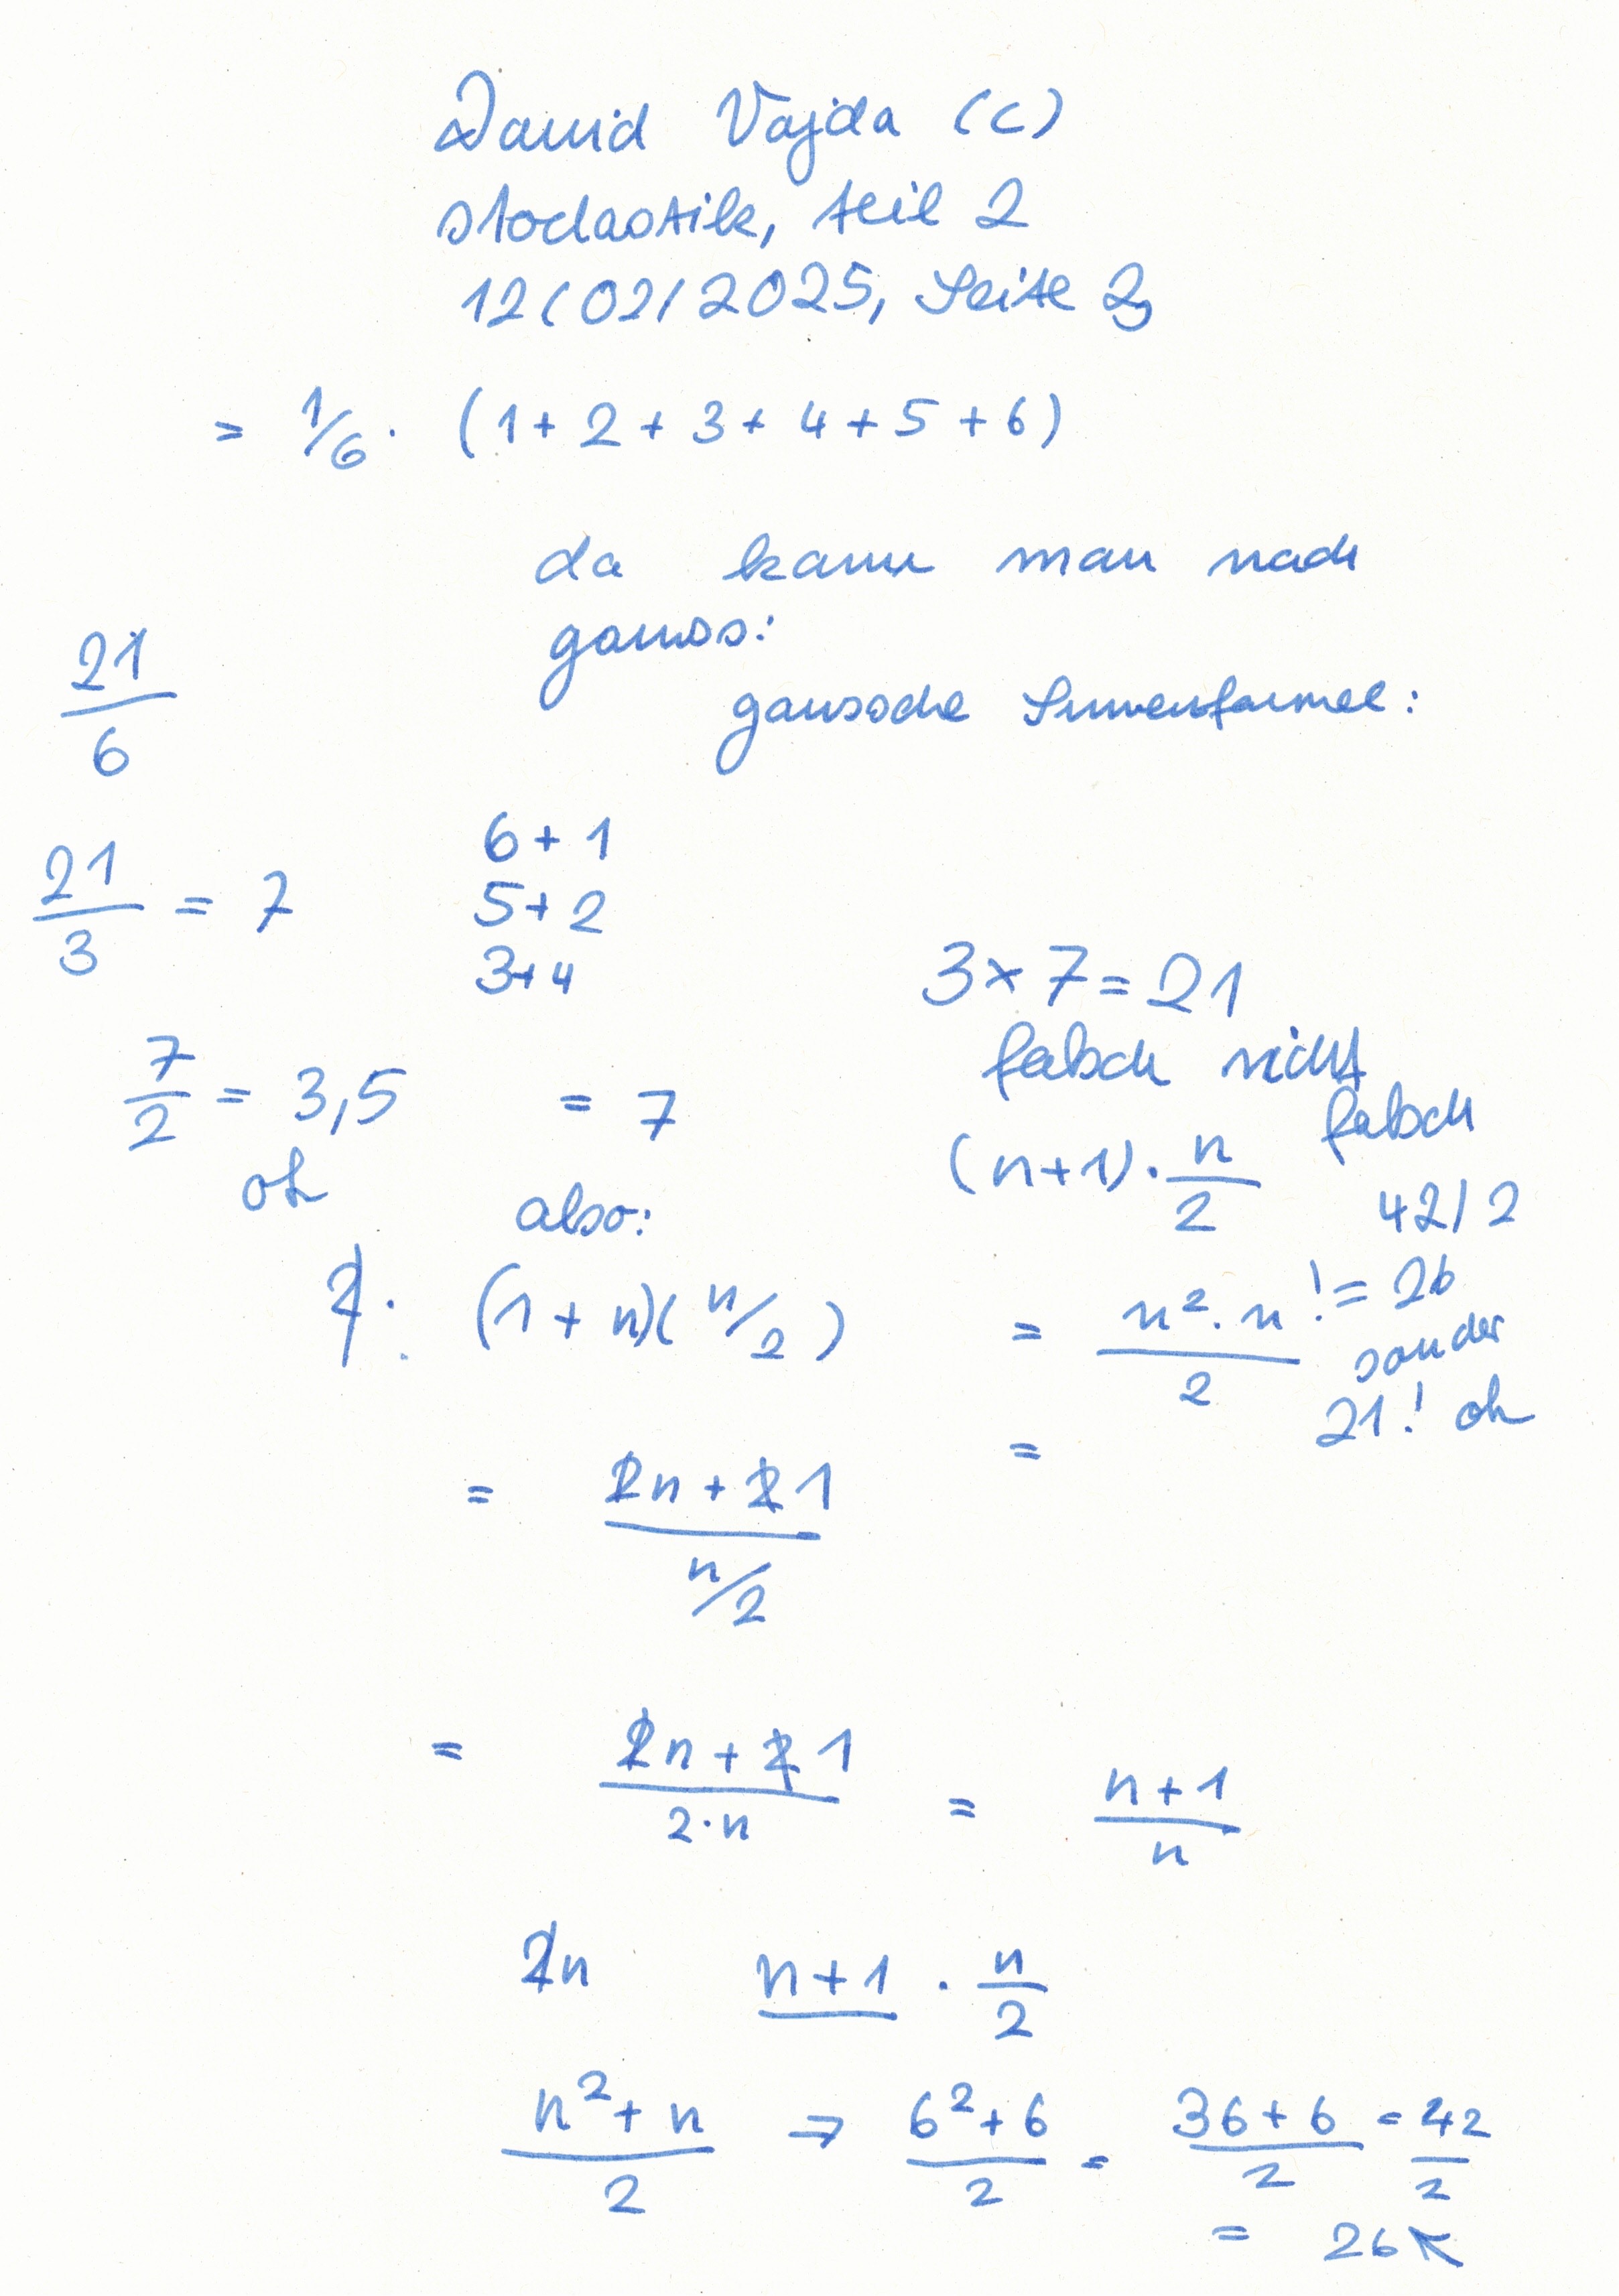 David Vajda (C)
stochastik, teil 2
12(02/2025, Seite 2
= 1/6 · (1+2+3+4+5+6)
da kann man nach
gauss:
gaussche Summenformel:
21
6
21
3
= 7
6+1
5+2
3+4
3×7=21
falsch nicht
falsch
7
2
= 3,5
= 7
ok
also:
(n+1)·
n
2
42/2
(1+n)(n/2)
=
n²·n
2
!= 26
sonder
21! ok
=
=
n + 1
n/2
=
n + 1
2·n
=
n+1
n
n
n+1 ·
n
2
n²+n
2
→
6²+6
2
=
36+6
2
=
42
2
= 26